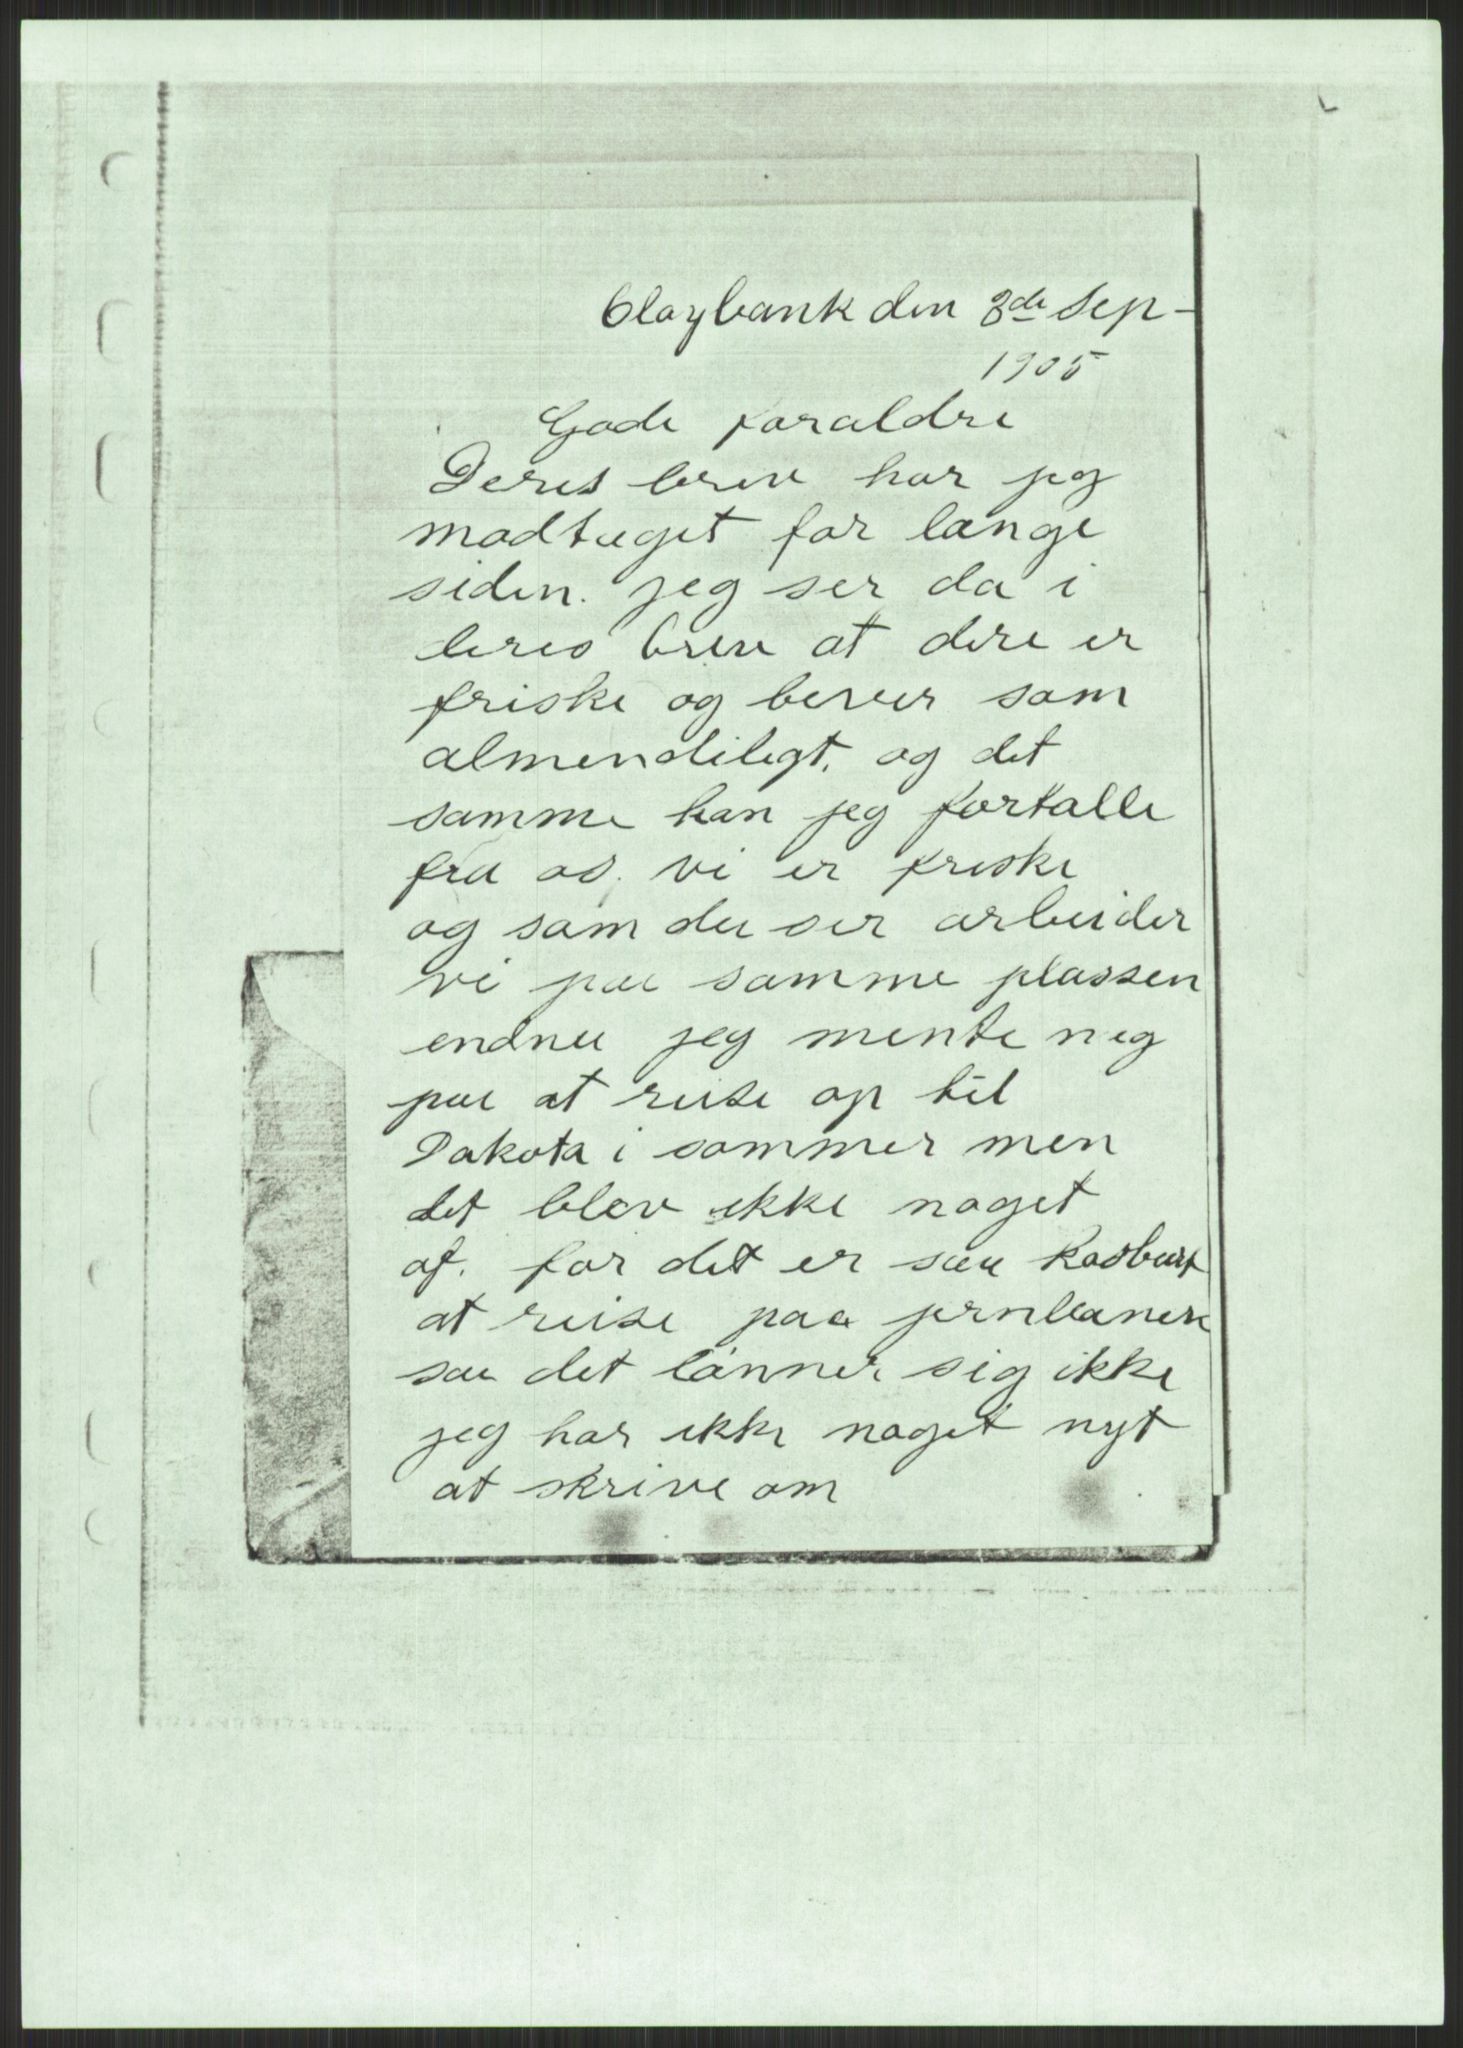 Claybank den 8de Sep-
1905
Gode foraldre
Deres brev har jeg
modtaget for lange
siden. jeg ser da i
deres brev at dere er
friske og lever som
almendeligt. og det
samme kan jeg fortalle
fra os. vi er friske
og som du ser arbeider
vi paa samme plassen
endnu jeg mente meg
paa at reise op til
Dakota i sommer men
det blev ikke noget
af. for det er saa kosbart
at reise paa jernbanen
saa det lönner sig ikke
jeg har ikke noget nyt
at skrive om